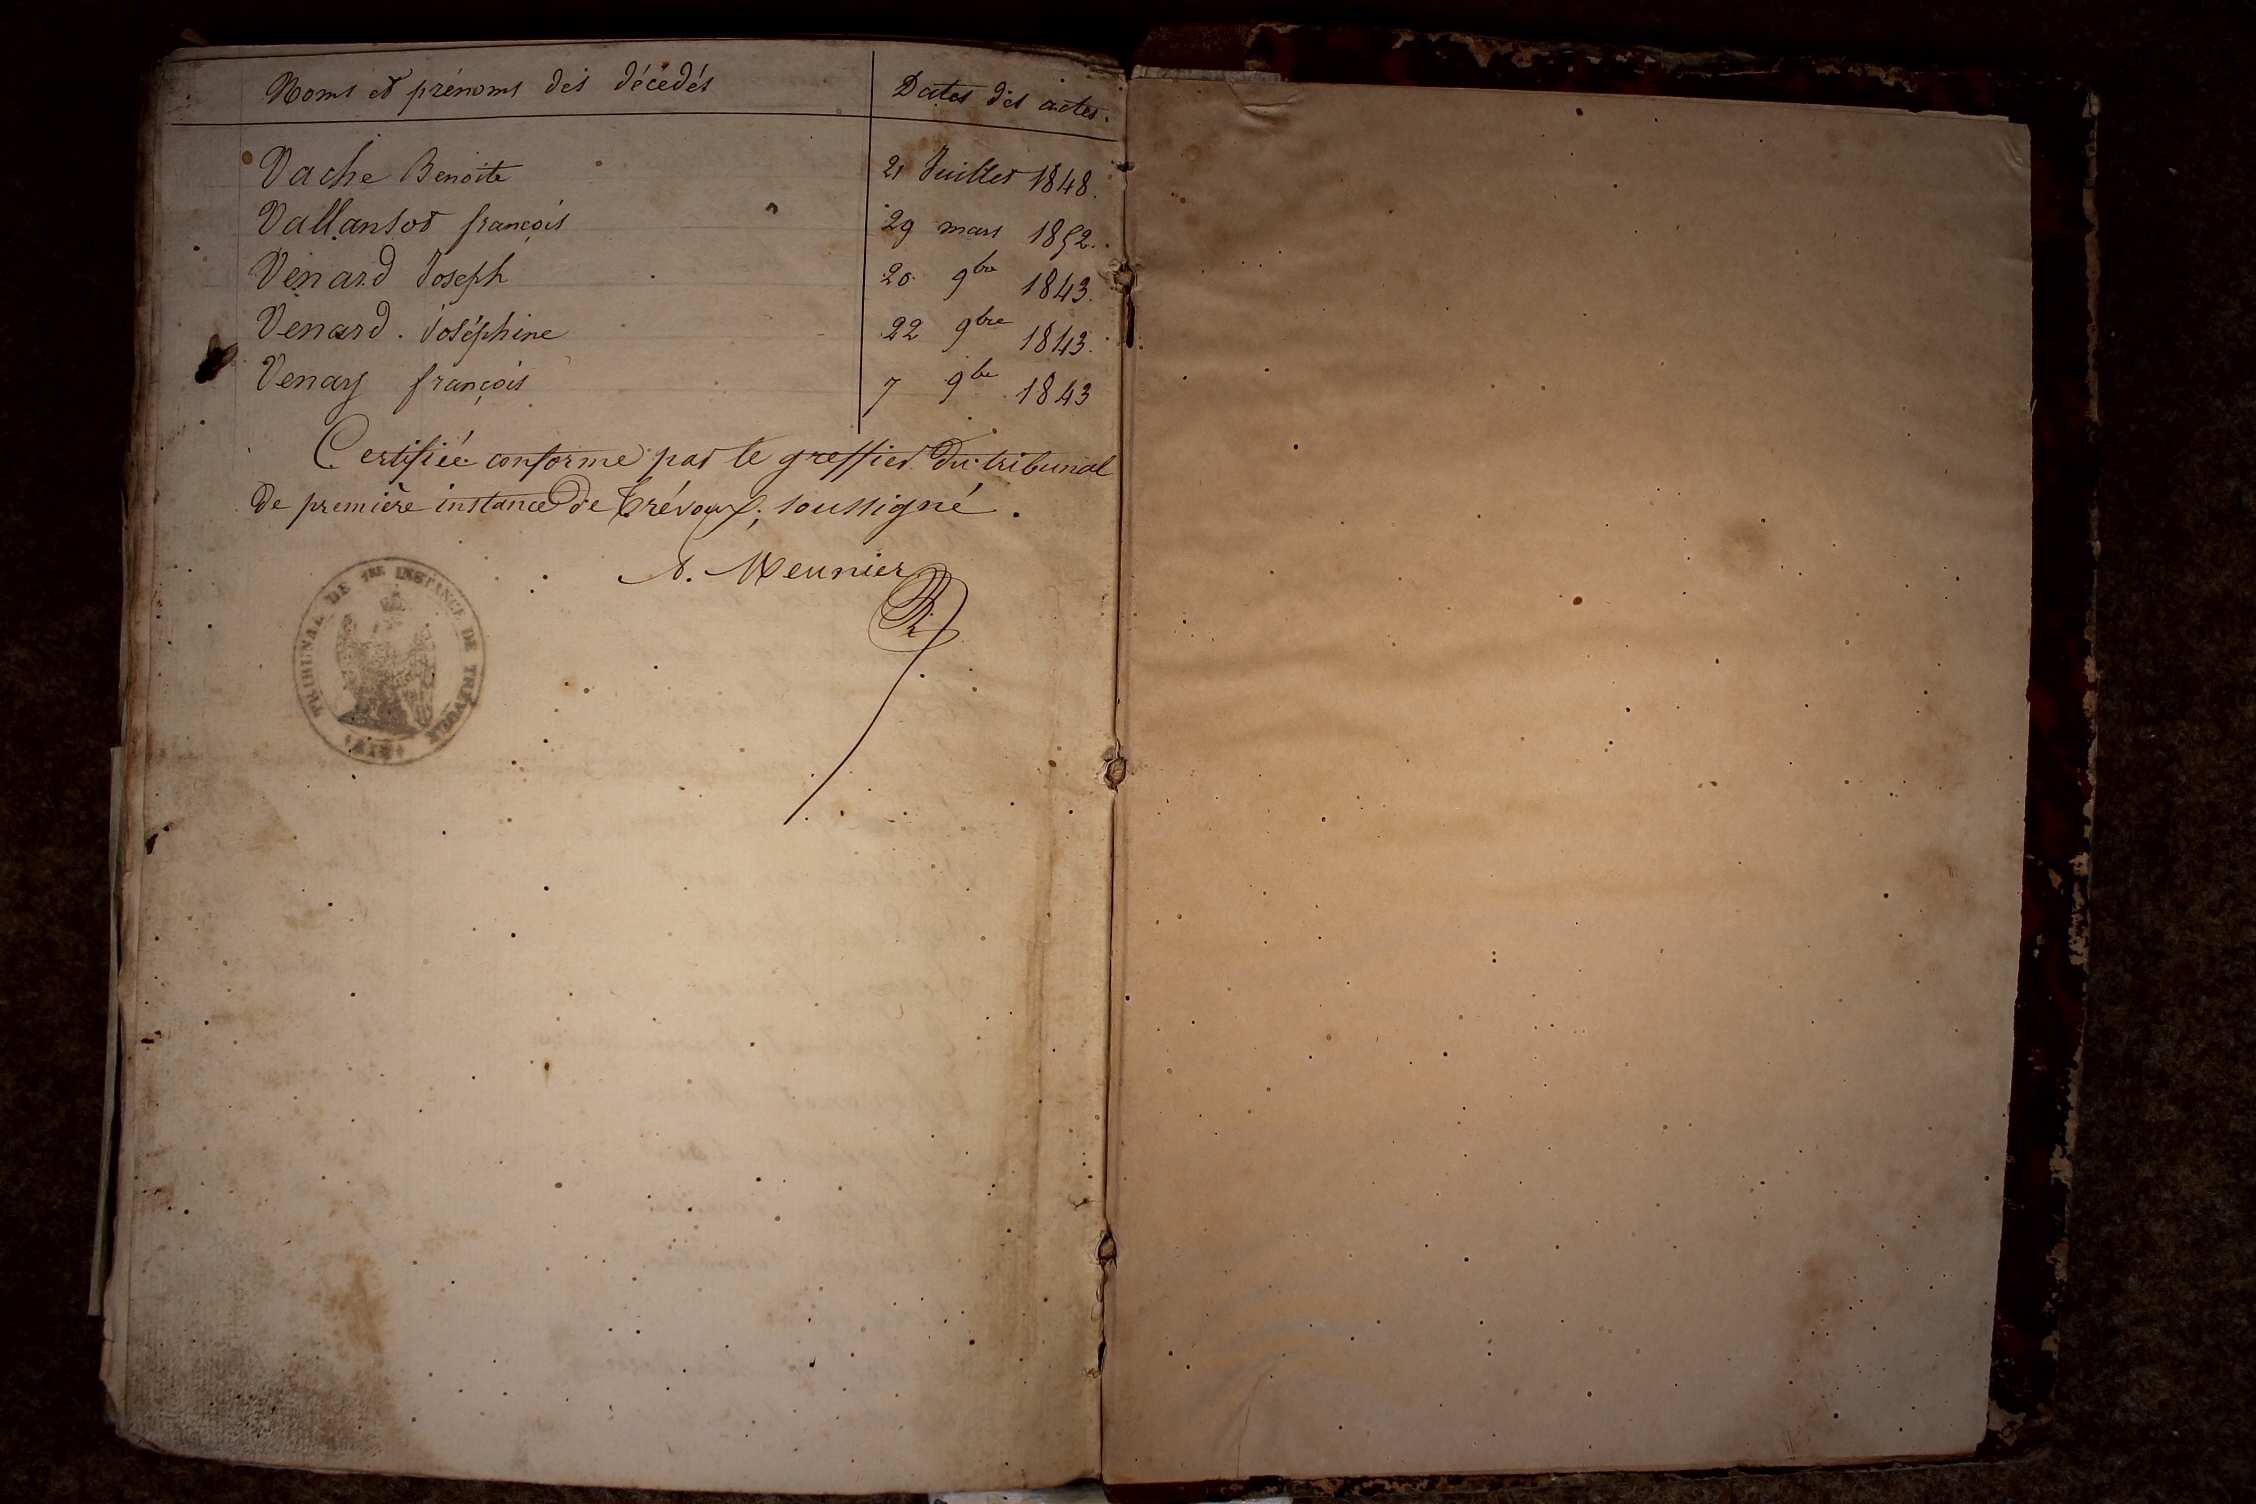 Noms et prénoms des décédés Dates des actes.
Vache Benoite 21 Juillet 1848.
Vallansot françois 29 mars 1852.
Venard Joseph 20 9bre 1843.
Venard Joséphine 22 9bre 1843.
Venay françois 7 9bre 1843
Certifiée conforme par le greffier du tribunal
de première instance de Trévoux, soussigné.
A. Meunier
TRIBUNAL DE 1RE INSTANCE DE TRÉVOUX